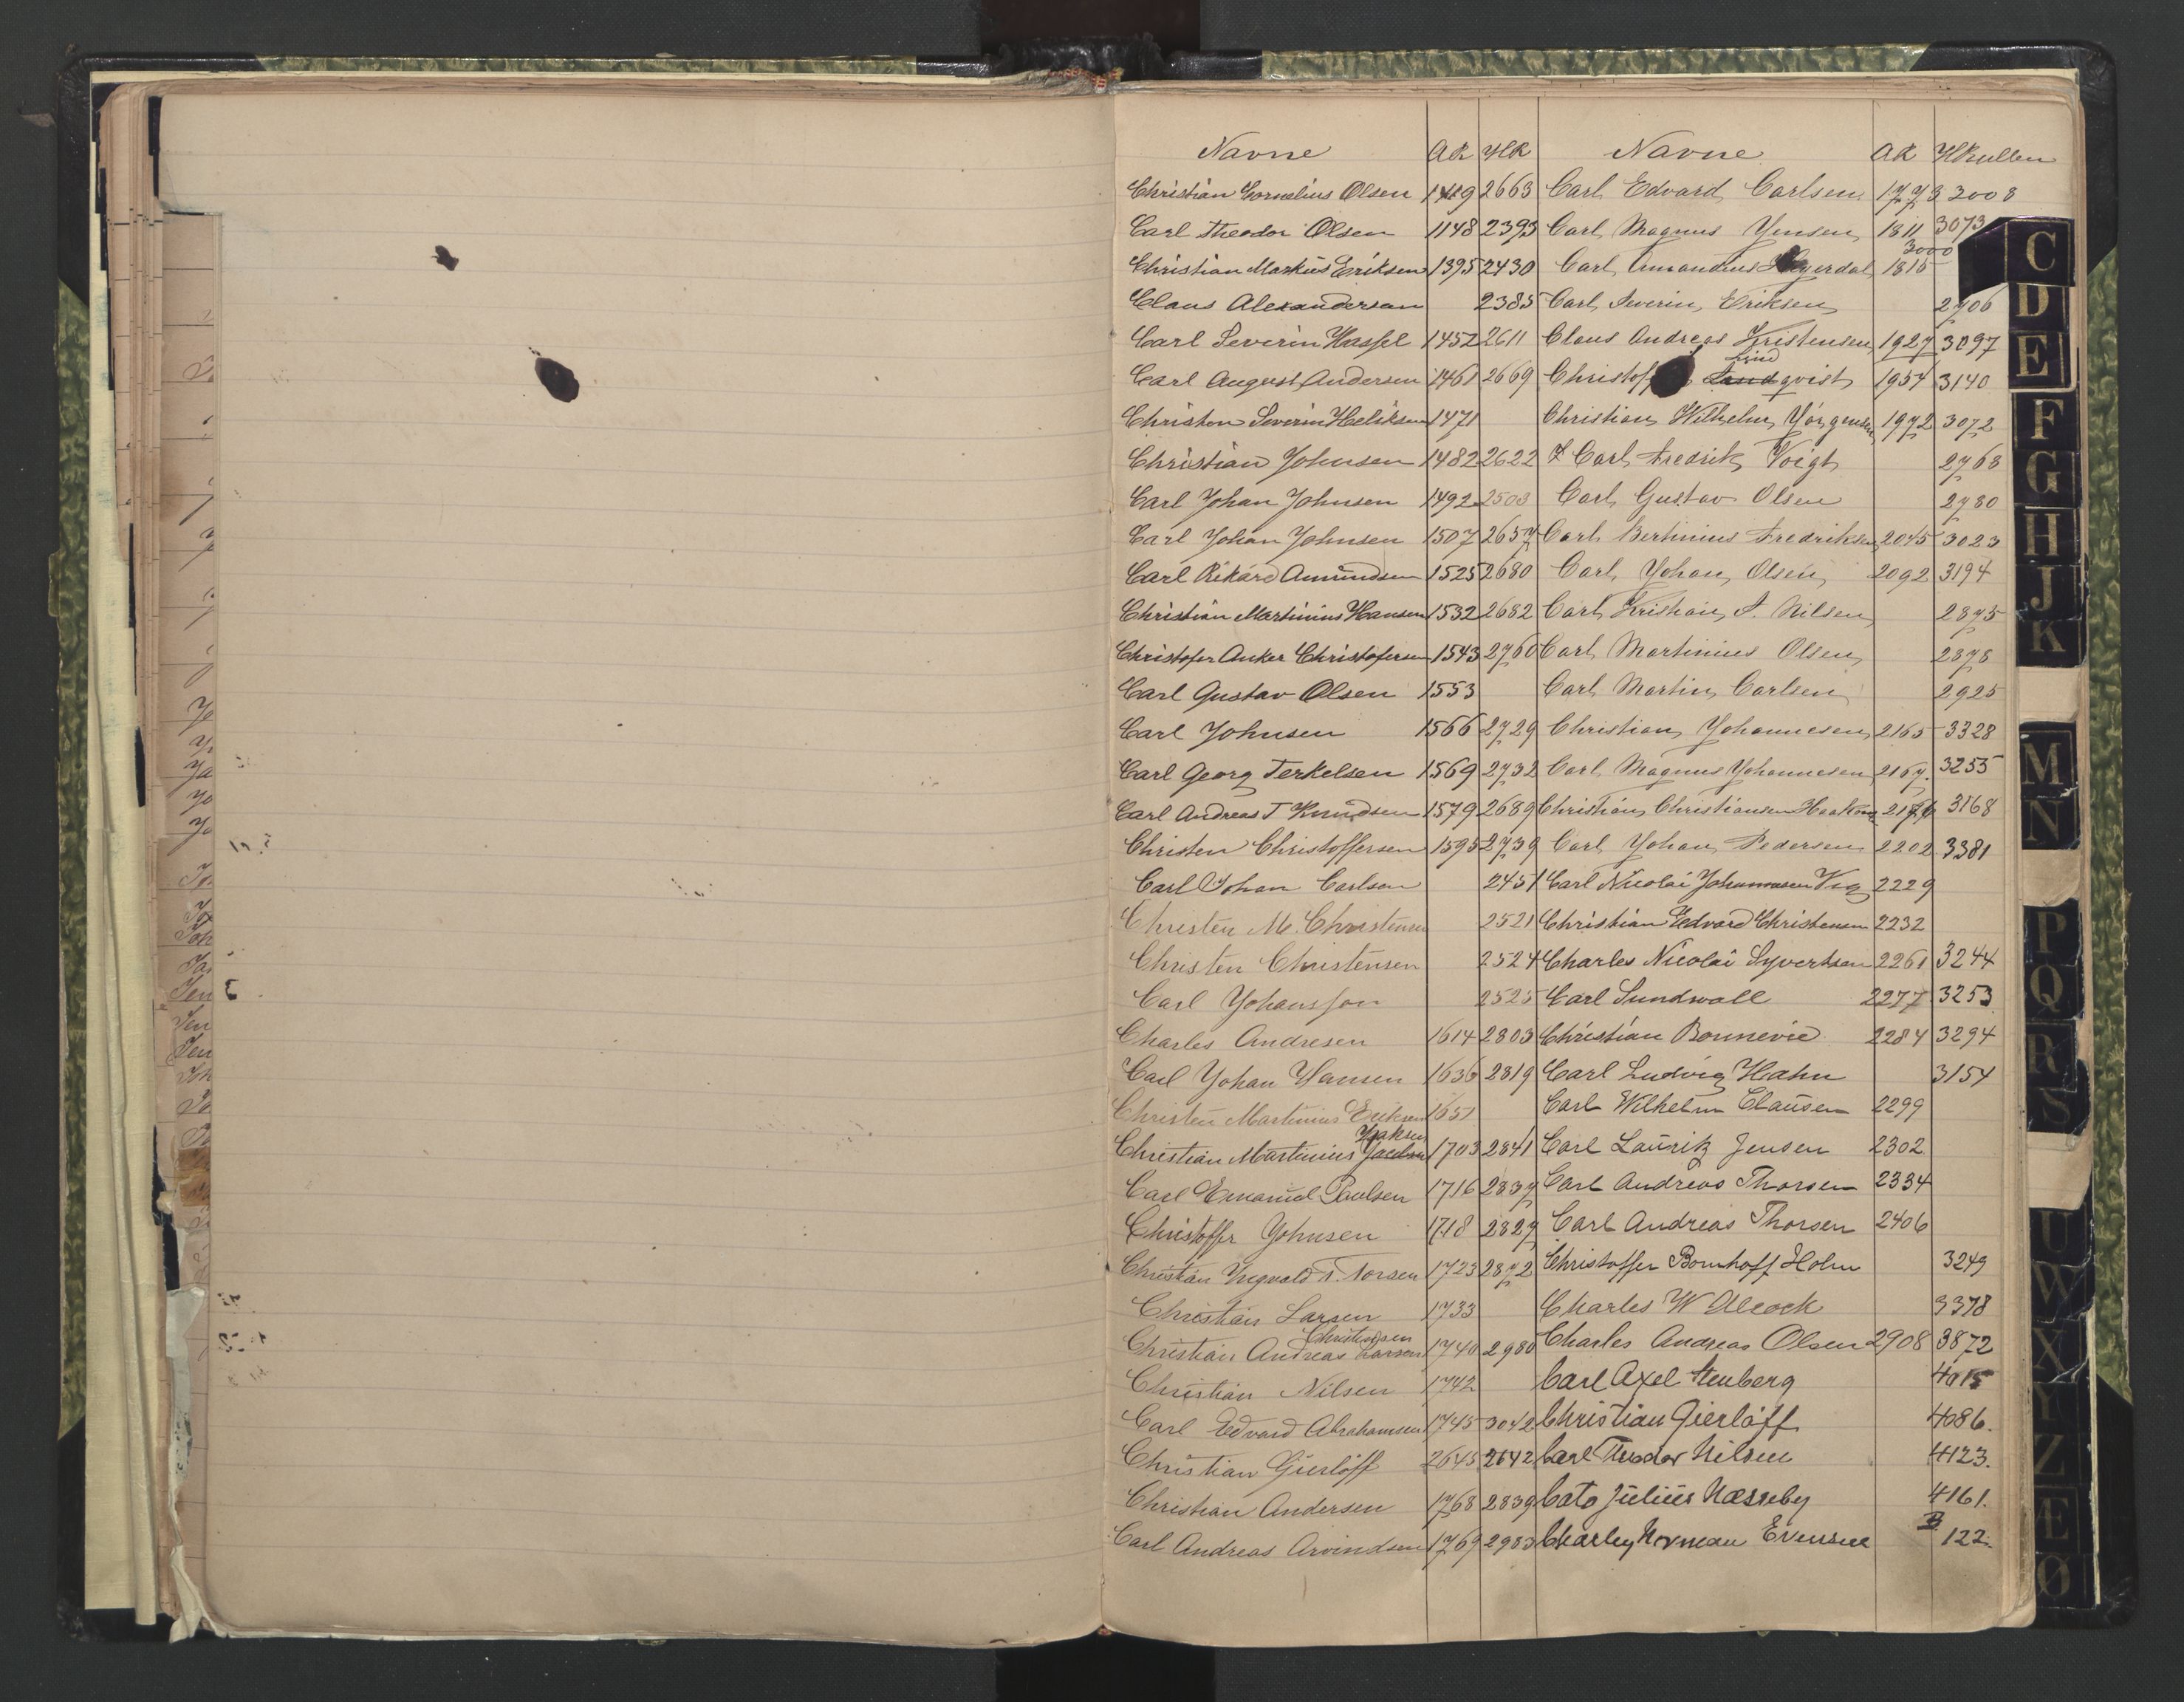 Navne AR HR
Christian Cornelius Olsen 1419 2663
Carl Theodor Olsen 1148 2393
Christian Markus Eriksen 1395 2430
Claus Alexandersen 2385
Carl Severin Hassel 1452 2611
Carl August Andersen 1461 2669
Christen Severin Heliksen 1471
Christian Johnsen 1482 2622
Carl Johan Johnsen 1492 2503
Carl Johan Johnsen 1507 2657
Carl Rikard Amundsen 1525 2680
Christian Martinius Hansen 1532 2682
Christofer Anker Christofersen 1543 2760
Carl Gustav Olsen 1553
Carl Johnsen 1566 2729
Carl Georg Terkelsen 1569 2732
Carl Andreas T Knudsen 1579 2689
Christen Christoffersen 1595 2739
Carl Johan Carlson 2451
Christen M. Christensen 2521
Christen Christensen 2524
Carl Johansson 2525
Charles Andresen 1614 2803
Carl Johan Hansen 1636 2819
Christen Martinius Eriksen 1651
Christian Martinius 1703 2841
Carl Emanuel Paulsen 1716 2837
Christoffer Johnsen 1718 2827
Christian Ingvald T. Torsen 1723 2872
Christian Larsen 1733
Christensen
Christian Andreas Larsen 1740 2980
Christian Nilsen 1742
Carl Edvard Abrahamsen 1745 3042
Christian Gierløff 2645 2642
Christian Andersen 1768 2839
Carl Andreas Arvindsen 1769 2983
Navne AR HRullen
Carl Edvard Carlsen 1773 3008
Carl Magnus Jensen 1811 3073
3000
Carl Amandus 1815
Carl Severin Eriksen 2706
Claus Andreas Kristensen 1927 3097
Lind
Christof Landqvist 1954 3140
Christian Wilhelm Jørgensen 1972 3072
Carl Fredrik Voigt 2768
Carl Gustav Olsen 2780
Carl Bertinius Fredriksen 2045 3023
Carl Johan Olsen 2092 3194
Carl Kristian A. Nilsen 2875
Carl Martinius Olsen 2878
Carl Martin Carlsen 2925
Christian Johannesen 2165 3328
Carl Magnus Johannesen 2167. 3255
Christian Christiansen 3168
Carl Johan Pedersen 2202 3381
Carl Nicolai Johannesen Vig 2229
Christian Edvard Christensen 2232
Charles Nicolai Syvertsen 2261 3244
Carl Sundwall 2277 3253
Christian Bonnevie 2284 3294
Carl Ludvig Hahn 3154
Carl Wilhelm Clausen 2299
Carl Lauritz Jensen 2302
Carl Andreas Thorsen 2334
Carl Andreas Thorsen 2406
Christoffer Bornhoff Holm 3249
Charles W Alcock 3378
Charles Andreas Olsen 2908 3872
Carl Axel Stenberg 4015
Christian Gierløff 4086.
Carl Theodor Nilsen 4123.
Cato Julius Næsseby 4161.
B
Charley Norman Evensen 122.
C
D
E
F
G
H
J
K
M
N
P
Q
R
S
U
W
X
Y
Z
Æ
Ø